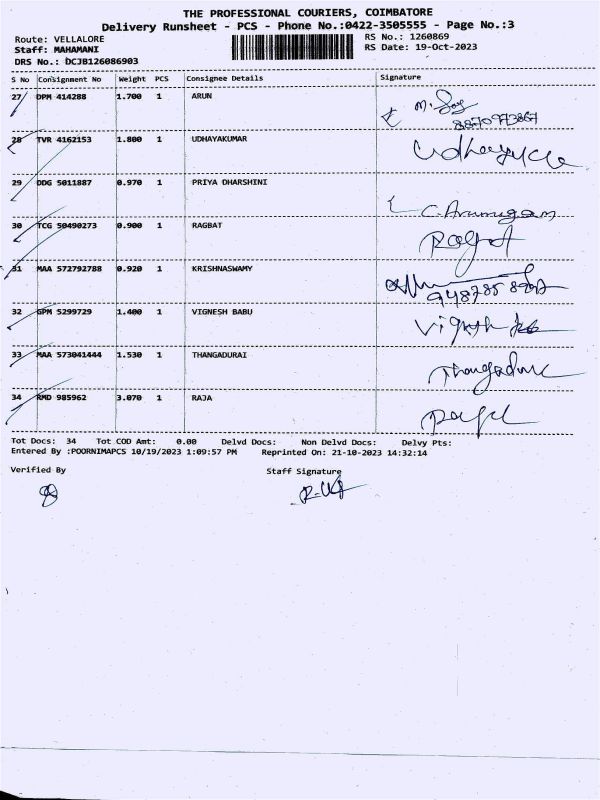 THE PROFESSIONAL COURIERS, COIMBATORE
Delivery Runsheet - PCS - Phone No.:0422-3505555 - Page No.:3
Route: VELLALORE RS No.: 1260869
Staff: MAHAMANI RS Date: 19-Oct-2023
DRS No.: DCJB126086903
S No Consignment No Weight PCS Consignee Details Signature
27 DPM 414288 1.700 1 ARUN
28 TVR 4162153 1.800 1 UDHAYAKUMAR
29 DDG 5011887 0.970 1 PRIYA DHARSHINI
C. Arumugam
30 TCG 50490273 0.900 1 RAGBAT
31 MAA 572792788 0.920 1 KRISHNASWAMY
32 GPM 5299729 1.400 1 VIGNESH BABU
33 MAA 573041444 1.530 1 THANGADURAI
34 RMD 985962 3.070 1 RAJA
Tot Docs: 34 Tot COD Amt: 0.00 Delvd Docs: Non Delvd Docs: Delvy Pts:
Entered By :POORNIMAPCS 10/19/2023 1:09:57 PM Reprinted On: 21-10-2023 14:32:14
Verified By Staff Signature